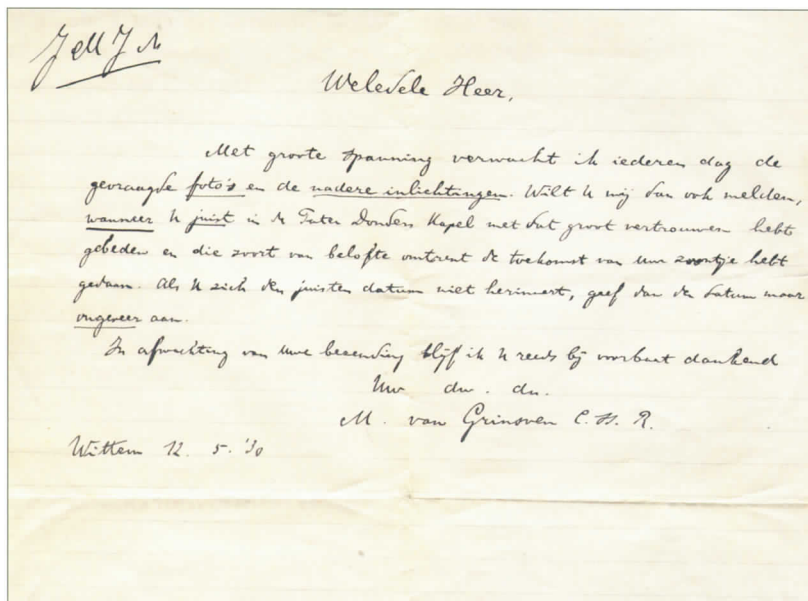 J M J A
Weledele Heer,
Met groote spanning verwacht ik iederen dag de
gevraagde foto's en de nadere inlichtingen. Wilt U mij dan ook melden,
wanneer U juist in de Pater Donders Kapel met dat groot vertrouwen hebt
gebeden en die soort van belofte omtrent de toekomst van uw zoontje hebt
gedaan. Als U zich den juisten datum niet herinnert, geef dan den datum maar
ongeveer aan.
In afwachting van Uwe bezending blijf ik U reeds bij voorbaat dankend
Uw dw. dn.
M. van Grinsven C. Ss. R.
Wittem 12. 5. '30